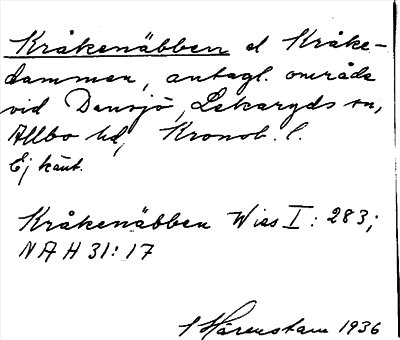 Kråkenäbben el Kråke-
dammen, antagl. område
vid Dansjö, Lekaryds sn,
Allbo hd, Kronob. l.
Ej känt.
Kråkenäbben Wies I: 283;
NAH 31: 17
S Härenstam 1936